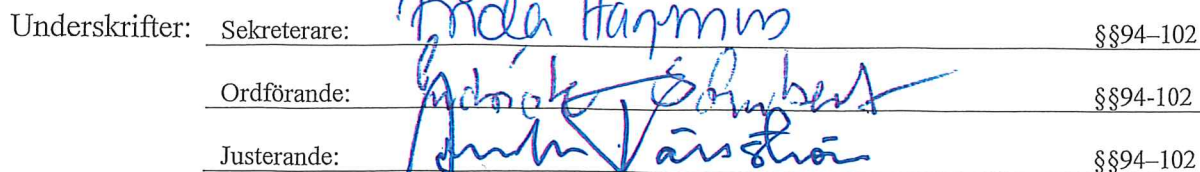 Underskrifter: Sekreterare: Frida Hammus §§94–102
Ordförande: §§94-102
Justerande: §§94–102